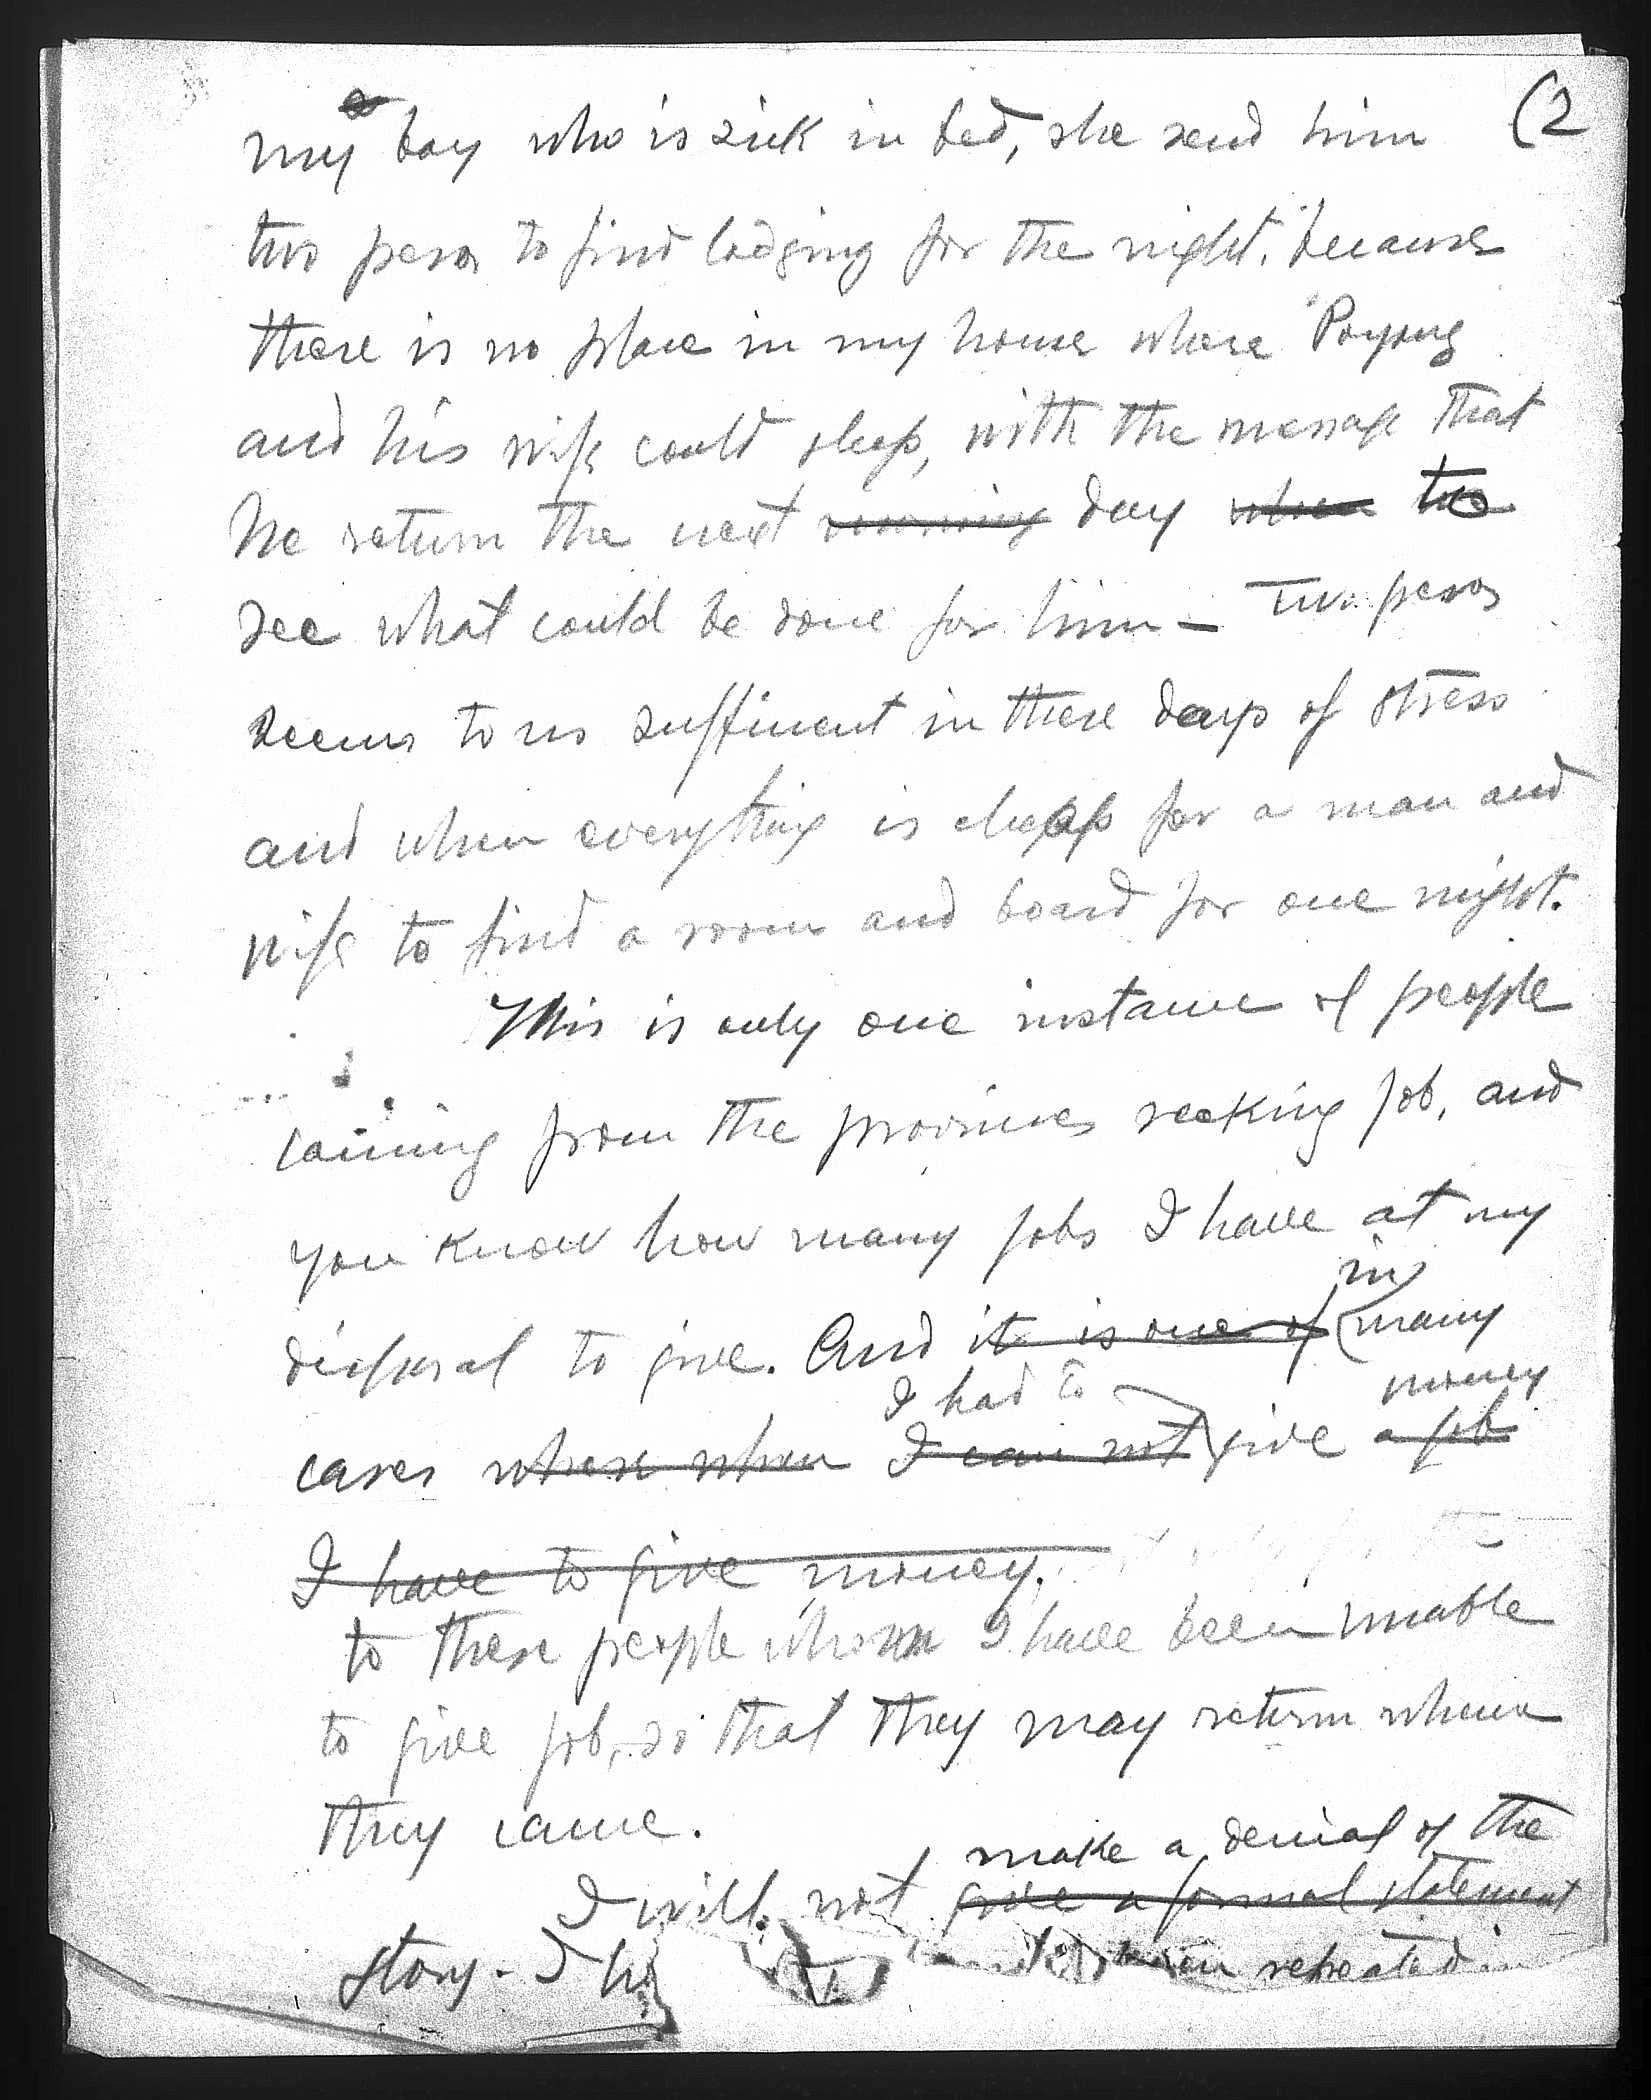 (2
my boy who is sick in bed, she send him
two pesos to find lodging for the night. because
there is no place in my house where "Poyong
and his wife could sleep, with the message that
he return the next morning day when to
see what could be done for him - Two pesos
seems to us suffinent in these days of stress
and when everything is cheap for a man and
wife to find a room and board for one night.
This is only one instance of people
coming from the provinces seeking job, and
you know how many jobs I have at my
in
disposal to give. And it is one of many
I had to money
cases where when I can not give a job
I have to give money.
to these people whom I have been unable
to give job, so that they may return whence
they came.
make a denial of the
I will not give a formal statement
story - I
repeated in